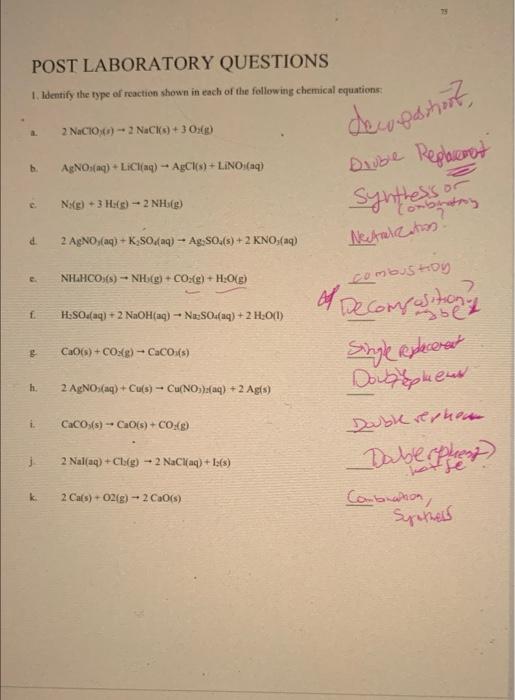 75
POST LABORATORY QUESTIONS
1. Identify the type of reaction shown in each of the following chemical equations:
a. 2 NaClO₃(s) → 2 NaCl(s) + 3 O₂(g)
b. AgNO₃(aq) + LiCl(aq) → AgCl(s) + LiNO₃(aq) Double Replacement
c. N₂(g) + 3 H₂(g) → 2 NH₃(g) Synthesis or
d. 2 AgNO₃(aq) + K₂SO₄(aq) → Ag₂SO₄(s) + 2 KNO₃(aq)
e. NH₄HCO₃(s) → NH₃(g) + CO₂(g) + H₂O(g) combustion
f. H₂SO₄(aq) + 2 NaOH(aq) → Na₂SO₄(aq) + 2 H₂O(l) Decomposition
g. CaO(s) + CO₂(g) → CaCO₃(s) Single replacement
h. 2 AgNO₃(aq) + Cu(s) → Cu(NO₃)₂(aq) + 2 Ag(s)
i. CaCO₃(s) → CaO(s) + CO₂(g) Double
j. 2 NaI(aq) + Cl₂(g) → 2 NaCl(aq) + I₂(s) Double
k. 2 Ca(s) + O2(g) → 2 CaO(s) Combination,
Synthesis